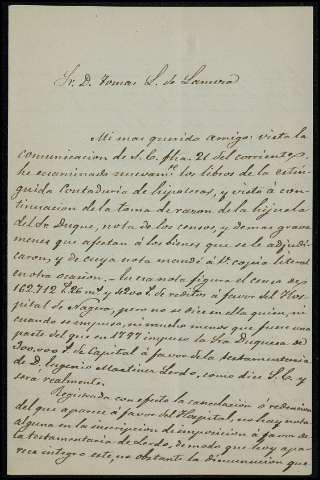 Sr. D. Tomas L. de
Mi mas querido amigo: vista la
comunicacion de S. E. fha. 21 del corriente,
he examinado nuevamte. los libros de la estin-
guida Contaduria de hipotecas, y vista á con-
tinuacion de la toma de razon de la hijuela
del Sr. Duque, nota de los censos, y demas grava-
menes que afectan á los bienes que se le adjudi-
caron, y de cuya nota mandé á V. copia literal
en otra ocasion. En esa nota figura el censo de
162.712 rs. 26 ms. y de réditos á favor del Hos-
pital de pero no se dice en ella quien, ni
cuando se impuso, ni mucho menos que fuese una
parte del que en 1777 impuso la Sra Duquesa de
300.000 rs. de Capital á favor de la testamentaria
de D. Eugenio Martinez como dice S. E. y
será realmente.
Registrada con efecto la cancelacion ó redencion
del que aparece á favor del Hospital, no hay nota
alguna en la inscripcion de imposicion á favor de
la testamentaria de de modo que hoy apa-
rece integro este, no obstante la disminucion que